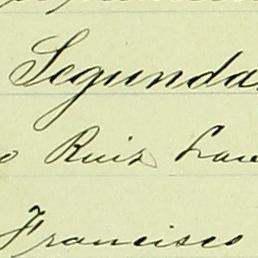 Segunda
o Ruiz
Francisco